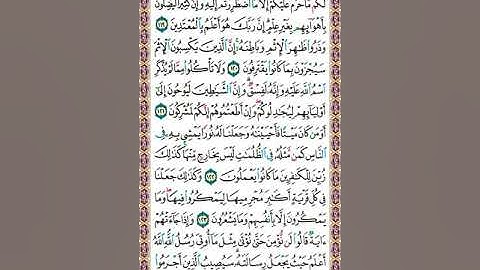 لَكُم مَّا حَرَّمَ عَلَيْكُمْ إِلَّا مَا اضْطُرِرْتُمْ إِلَيْهِ وَإِنَّ كَثِيرًا لَّيُضِلُّونَ
بِأَهْوَائِهِم بِغَيْرِ عِلْمٍ إِنَّ رَبَّكَ هُوَ أَعْلَمُ بِالْمُعْتَدِينَ ١١٩
وَذَرُوا ظَاهِرَ الْإِثْمِ وَبَاطِنَهُ إِنَّ الَّذِينَ يَكْسِبُونَ الْإِثْمَ
سَيُجْزَوْنَ بِمَا كَانُوا يَقْتَرِفُونَ ١٢٠ وَلَا تَأْكُلُوا مِمَّا لَمْ يُذْكَرِ
اسْمُ اللَّهِ عَلَيْهِ وَإِنَّهُ لَفِسْقٌ وَإِنَّ الشَّيَاطِينَ لَيُوحُونَ إِلَىٰ
أَوْلِيَائِهِمْ لِيُجَادِلُوكُمْ وَإِنْ أَطَعْتُمُوهُمْ إِنَّكُمْ لَمُشْرِكُونَ ١٢١
أَوَمَن كَانَ مَيْتًا فَأَحْيَيْنَاهُ وَجَعَلْنَا لَهُ نُورًا يَمْشِي بِهِ فِي
النَّاسِ كَمَن مَّثَلُهُ فِي الظُّلُمَاتِ لَيْسَ بِخَارِجٍ مِّنْهَا كَذَٰلِكَ
زُيِّنَ لِلْكَافِرِينَ مَا كَانُوا يَعْمَلُونَ ١٢٢ وَكَذَٰلِكَ جَعَلْنَا
فِي كُلِّ قَرْيَةٍ أَكَابِرَ مُجْرِمِيهَا لِيَمْكُرُوا فِيهَا وَمَا
يَمْكُرُونَ إِلَّا بِأَنفُسِهِمْ وَمَا يَشْعُرُونَ ١٢٣ وَإِذَا جَاءَتْهُمْ
آيَةٌ قَالُوا لَن نُّؤْمِنَ حَتَّىٰ نُؤْتَىٰ مِثْلَ مَا أُوتِيَ رُسُلُ اللَّهِ اللَّهُ
أَعْلَمُ حَيْثُ يَجْعَلُ رِسَالَتَهُ سَيُصِيبُ الَّذِينَ أَجْرَمُوا